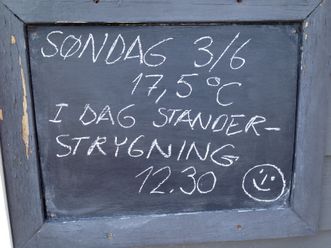 SØNDAG 3/6
17,5°C
I DAG STANDER-
STRYGNING
12.30